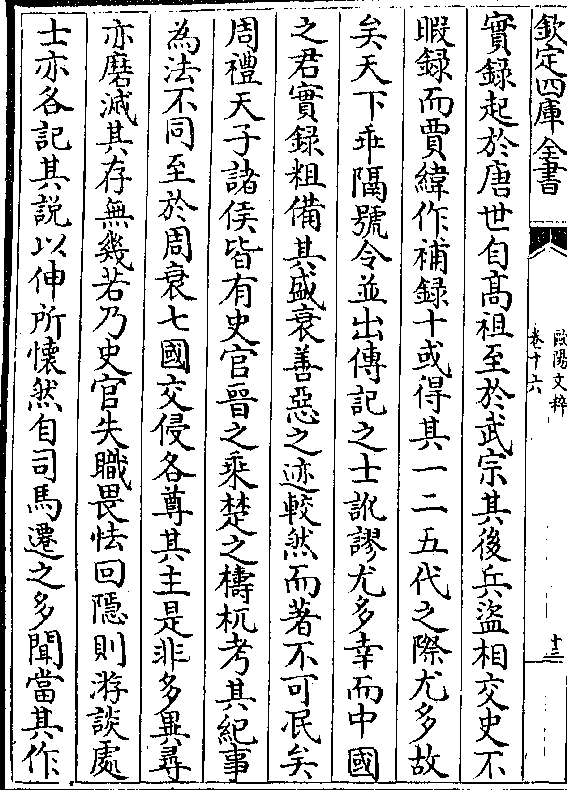 欽定四庫全書
歐陽文粹
卷十六
十三
實録起於唐世自高祖至於武宗其後兵盜相交史不
暇録而賈緯作補録十或得其一二五代之際尤多故
矣天下乖隔號令並出傳記之士訛謬尤多幸而中國
之君實録粗備其盛衰善惡之迹較然而著不可泯矣
周禮天子諸侯皆有史官晉之乘楚之檮杌考其紀事
為法不同至於周衰七國交侵各尊其主是非多異尋
亦磨滅其存無幾若乃史官失職畏怯回隱則游談處
士亦各記其説以伸所懐然自司馬遷之多聞當其作